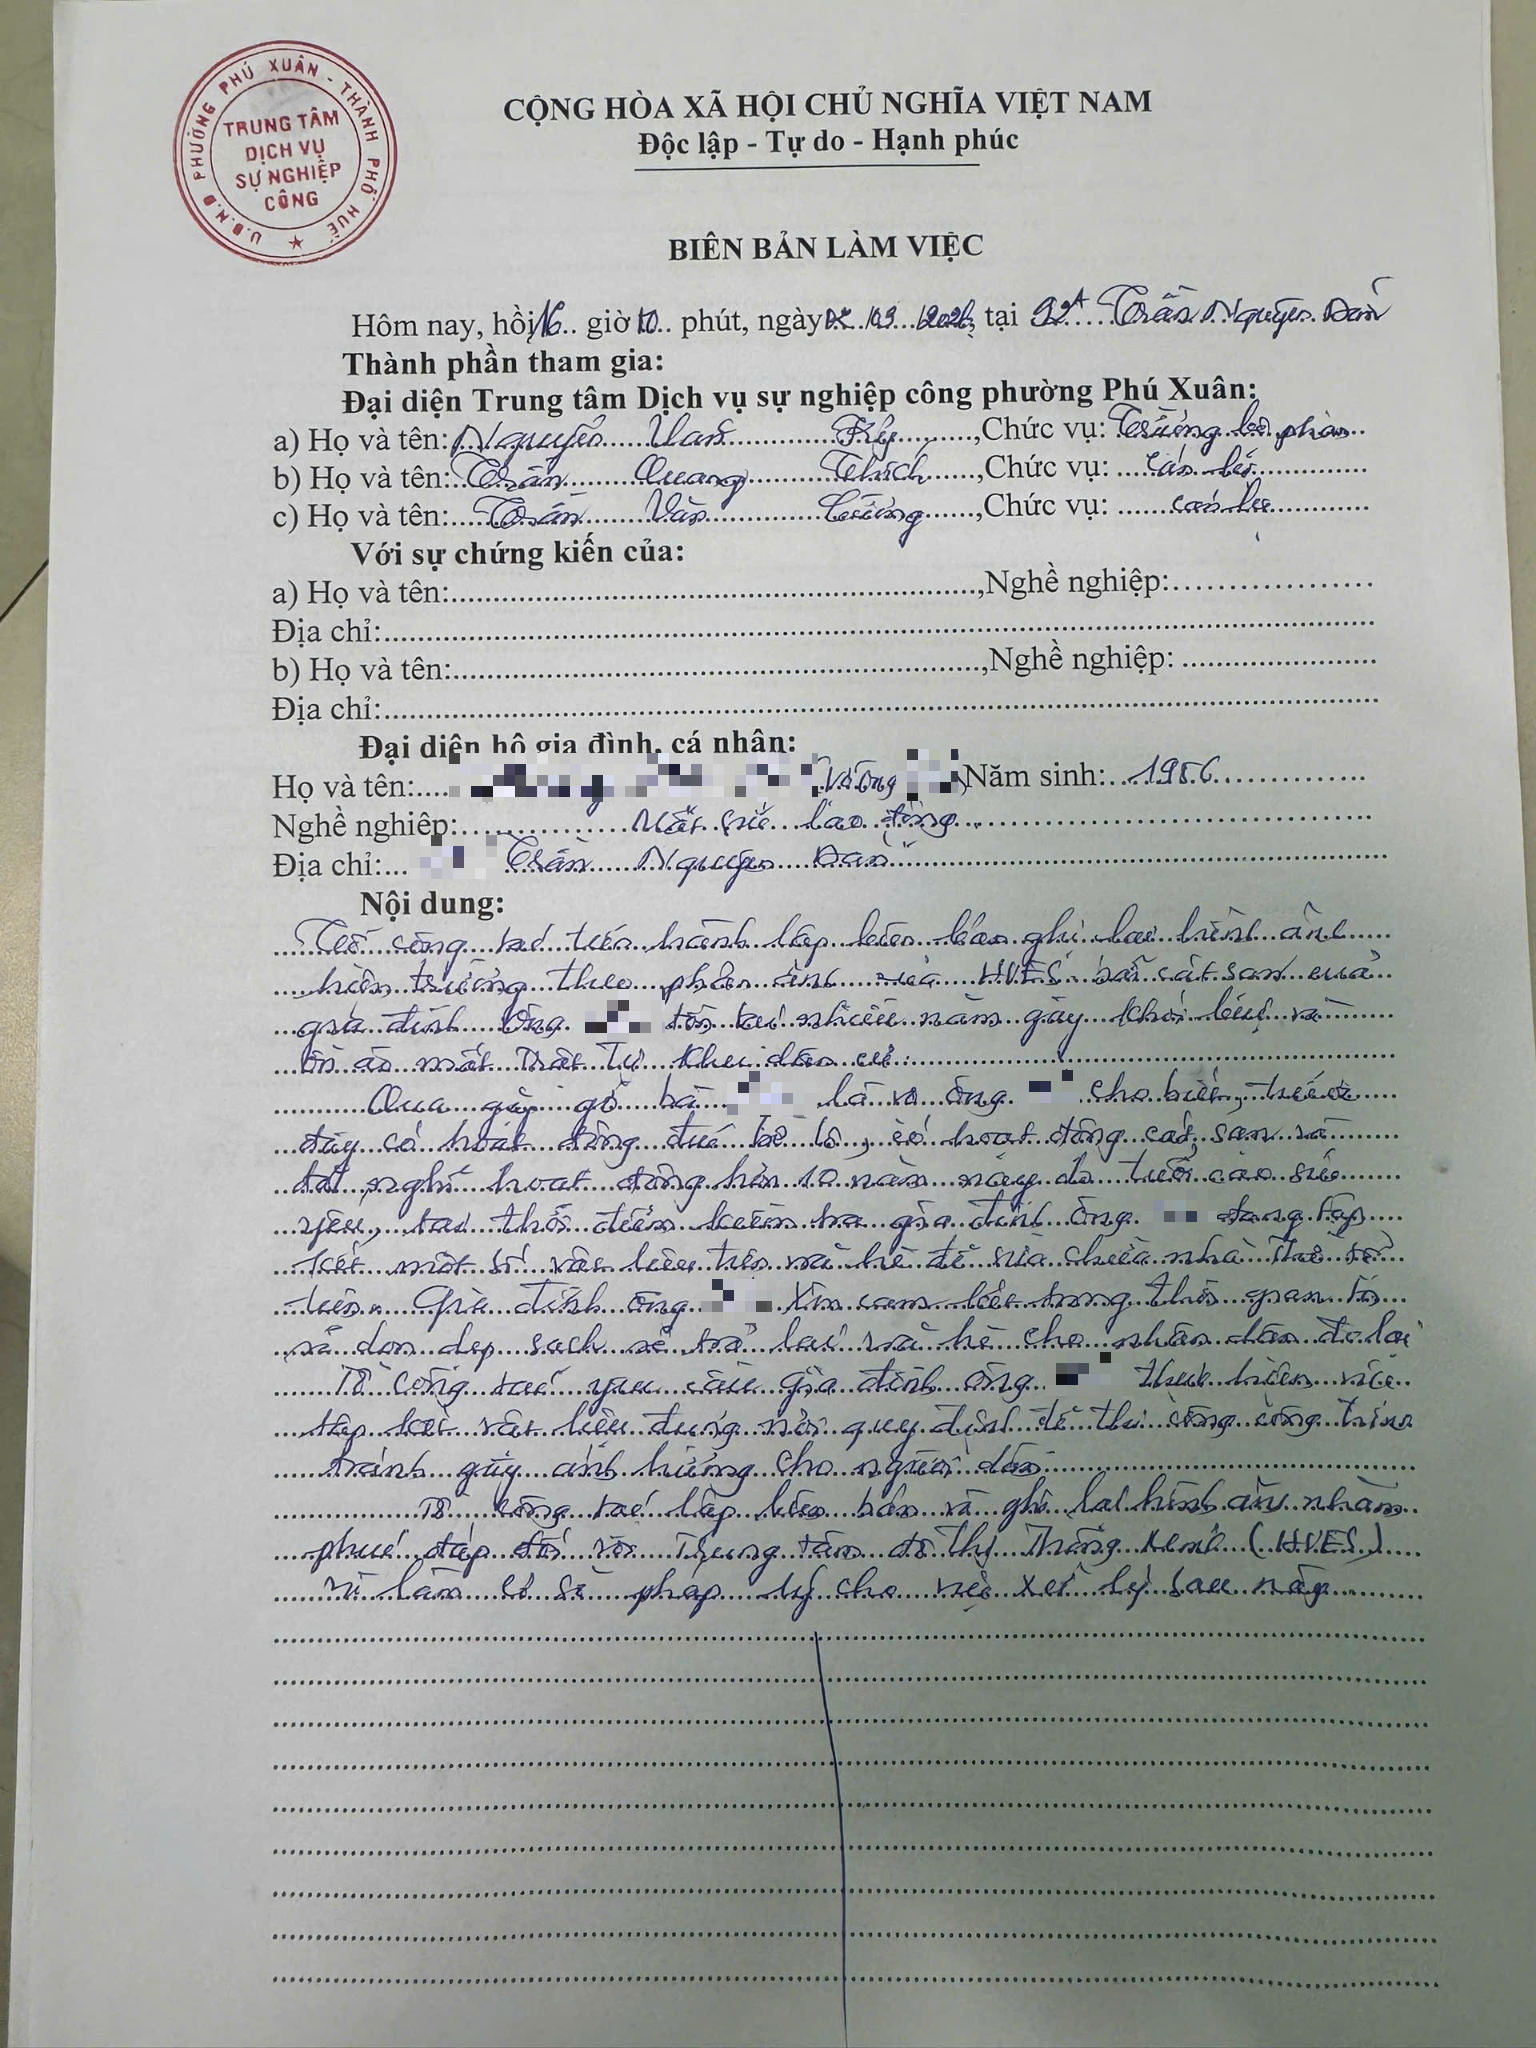 U.B.N.D PHƯỜNG PHÚ XUÂN - THÀNH PHỐ HUẾ
TRUNG TÂM
DỊCH VỤ
SỰ NGHIỆP
CÔNG
CỘNG HÒA XÃ HỘI CHỦ NGHĨA VIỆT NAM
Độc lập - Tự do - Hạnh phúc
BIÊN BẢN LÀM VIỆC
Hôm nay, hồi 16 giờ 10 phút, ngày 03 / 2026, tại 92A Trần Nguyên Đán
Thành phần tham gia:
Đại diện Trung tâm Dịch vụ sự nghiệp công phường Phú Xuân:
a) Họ và tên: Nguyễn Văn, Chức vụ: Trưởng bộ phận
b) Họ và tên: Trần Quang Thích, Chức vụ: cán bộ
c) Họ và tên: Trần Văn Cường, Chức vụ: cán bộ
Với sự chứng kiến của:
a) Họ và tên:, Nghề nghiệp:
Địa chỉ:
b) Họ và tên:, Nghề nghiệp:
Địa chỉ:
Đại diện hộ gia đình, cá nhân:
Họ và tên: (vợ ông ) Năm sinh: 1956
Nghề nghiệp: Mất sức lao động
Địa chỉ: Trần Nguyên Đán
Nội dung:
Tổ công tác tiến hành lập biên bản ghi lại hình ảnh
hiện trường theo phản ánh của HUES bãi cát sạn của
gia đình ông tồn tại nhiều năm gây khói bụi và
ồn ào mất trật tự khu dân cư.
Qua gặp gỡ bà là vợ ông cho biết, trước
đây có hoạt động, có hoạt động cát, sạn và
đã nghỉ hoạt động hơn 10 năm nay do tuổi cao sức
yếu, tại thời điểm kiểm tra gia đình ông đang tập
kết một số vật liệu trên vỉa hè để sửa chữa nhà thờ tổ
tiên. Gia đình ông xin cam kết trong thời gian tới
sẽ dọn dẹp sạch sẽ trả lại vỉa hè cho nhân dân đi lại
Tổ công tác yêu cầu gia đình ông thực hiện việc
tập kết vật liệu đúng nơi quy định để thi công công trình
tránh gây ảnh hưởng cho người dân
Tổ công tác lập biên bản và ghi lại hình ảnh nhằm
phúc đáp đối với Trung tâm đô thị thông minh (HUES)
và làm cơ sở pháp lý cho việc xử lý sau này